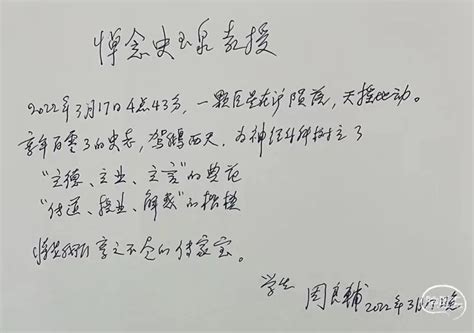 悼念史玉泉教授
2022年3月17日4点43分，一颗巨星在沪陨落，天摇地动。
享年百零3的史老，驾鹤西天，为神经外科树立了
“立德、立业、立言”的典范
“传道、授业、解惑”的楷模
将是我们享之不尽的传家宝。
学生 周良輔 2022年3月17日晚